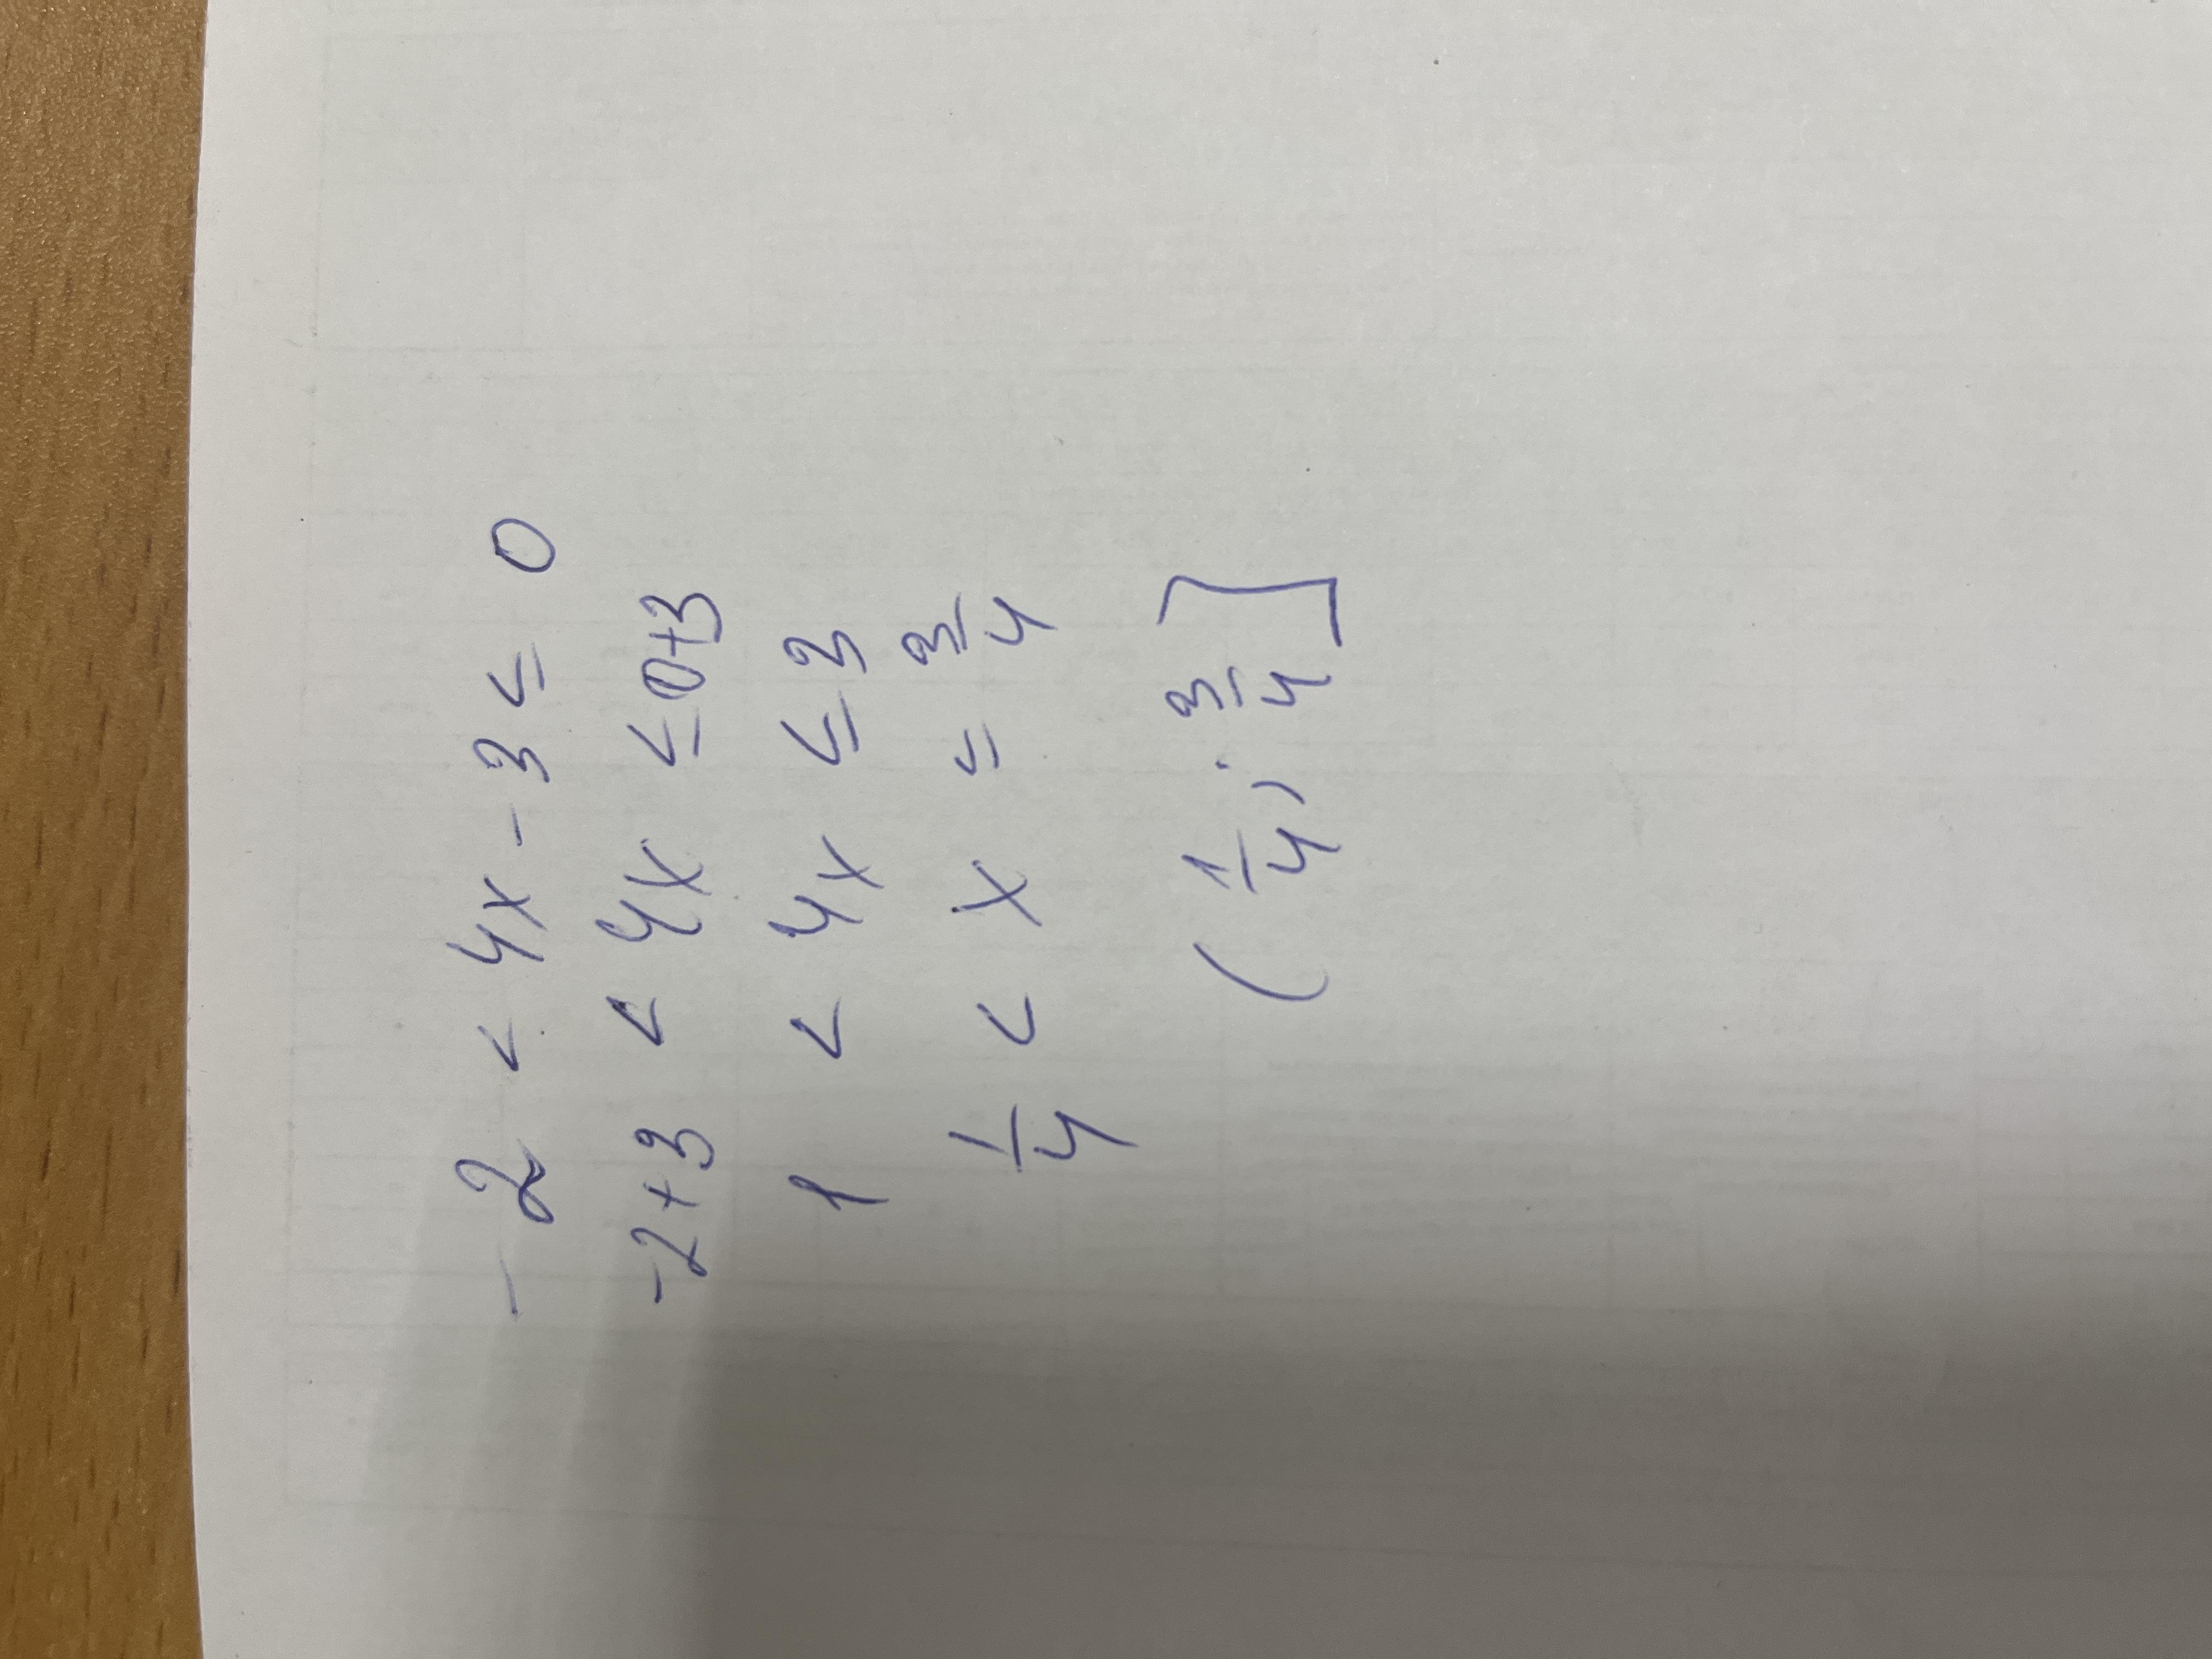 - 2 < 4x - 3 ≤ 0
-2+3 < 4x ≤ 0+3
1 < 4x ≤ 3
1/4 < x ≤ 3/4
(1/4; 3/4]